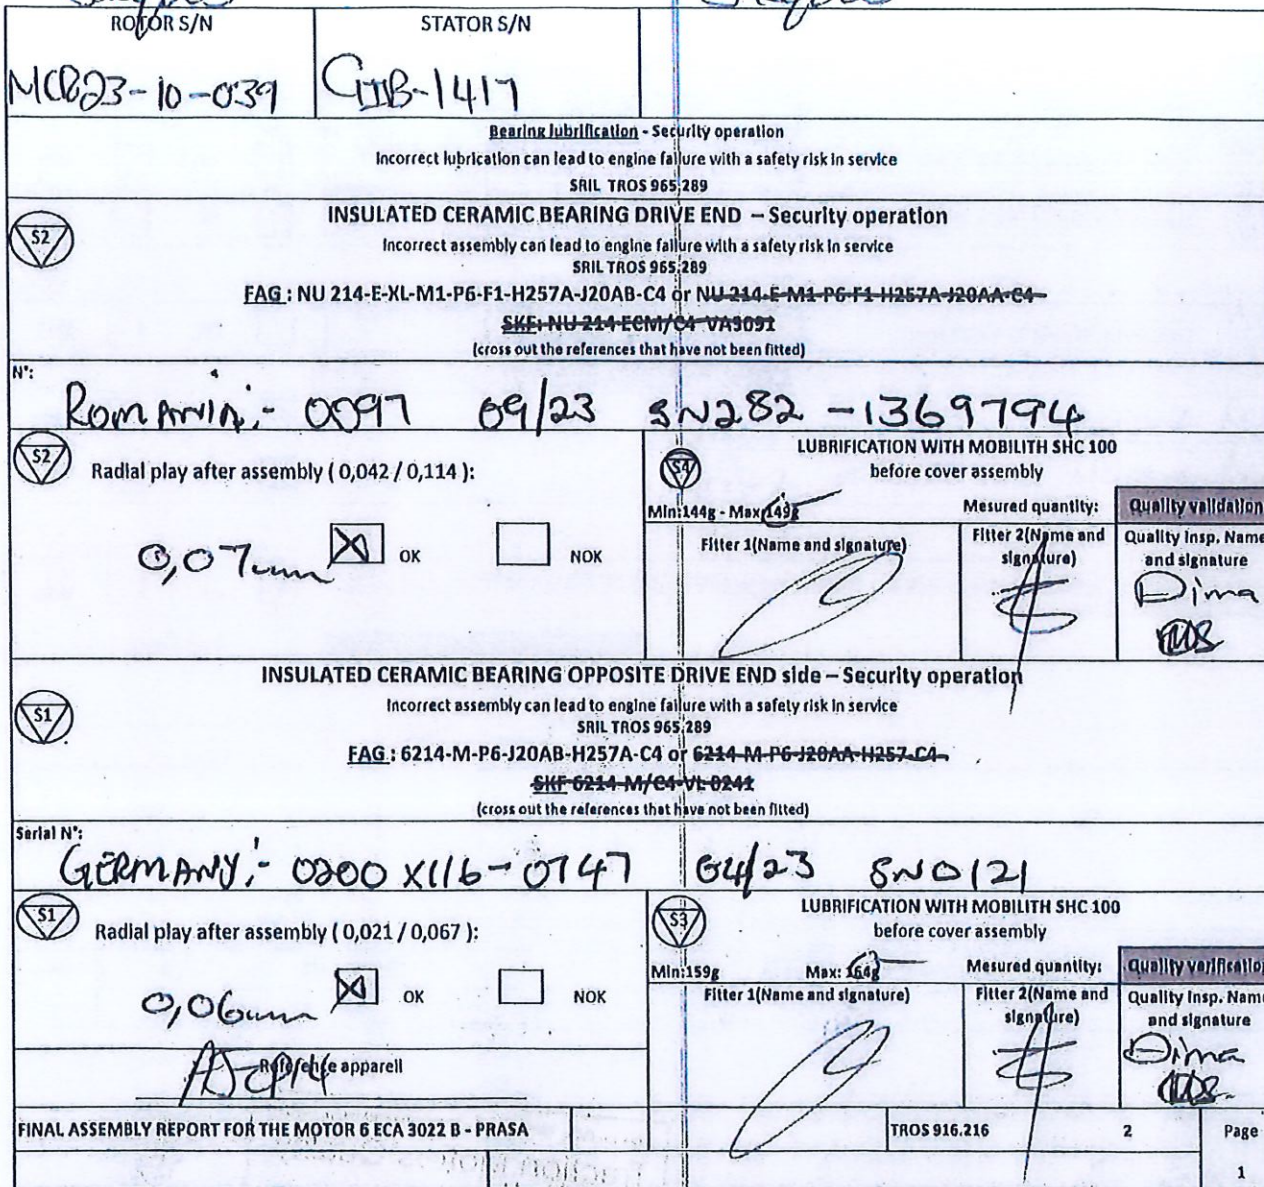 ROTOR S/N STATOR S/N
MCR23-10-039 GIIB-1417
Bearing lubrification - Security operation
Incorrect lubrication can lead to engine failure with a safety risk in service
SRIL TROS 965 289
S2
INSULATED CERAMIC BEARING DRIVE END – Security operation
Incorrect assembly can lead to engine failure with a safety risk in service
SRIL TROS 965 289
FAG : NU 214-E-XL-M1-P6-F1-H257A-J20AB-C4 or NU 214-E-M1-P6-F1-H257A-J20AA-C4
SKF: NU 214 ECM/C4 VA3091
(cross out the references that have not been fitted)
N°:
ROMANIA:- 0097 09/23 SN282 -1369794
S2
Radial play after assembly ( 0,042 / 0,114 ):
0,07mm OK NOK
S4
LUBRIFICATION WITH MOBILITH SHC 100
before cover assembly
Min:144g - Max:149g Mesured quantity: Quality validation
Fitter 1(Name and signature) Fitter 2(Name and signature) Quality Insp. Name and signature
Dima
INSULATED CERAMIC BEARING OPPOSITE DRIVE END side – Security operation
S1
Incorrect assembly can lead to engine failure with a safety risk in service
SRIL TROS 965 289
FAG : 6214-M-P6-J20AB-H257A-C4 or 6214-M-P6-J20AA-H257-C4
SKF 6214 M/C4 VL 0241
(cross out the references that have not been fitted)
Serial N°:
GERMANY:- 0200 X116-0747 04/23 SN0121
S1
Radial play after assembly ( 0,021 / 0,067 ):
0,06mm OK NOK
Reference apparell
S3
LUBRIFICATION WITH MOBILITH SHC 100
before cover assembly
Min:159g Max: 164g Mesured quantity: Quality verification
Fitter 1(Name and signature) Fitter 2(Name and signature) Quality Insp. Name and signature
Dima
FINAL ASSEMBLY REPORT FOR THE MOTOR 6 ECA 3022 B - PRASA TROS 916.216 2 Page
1